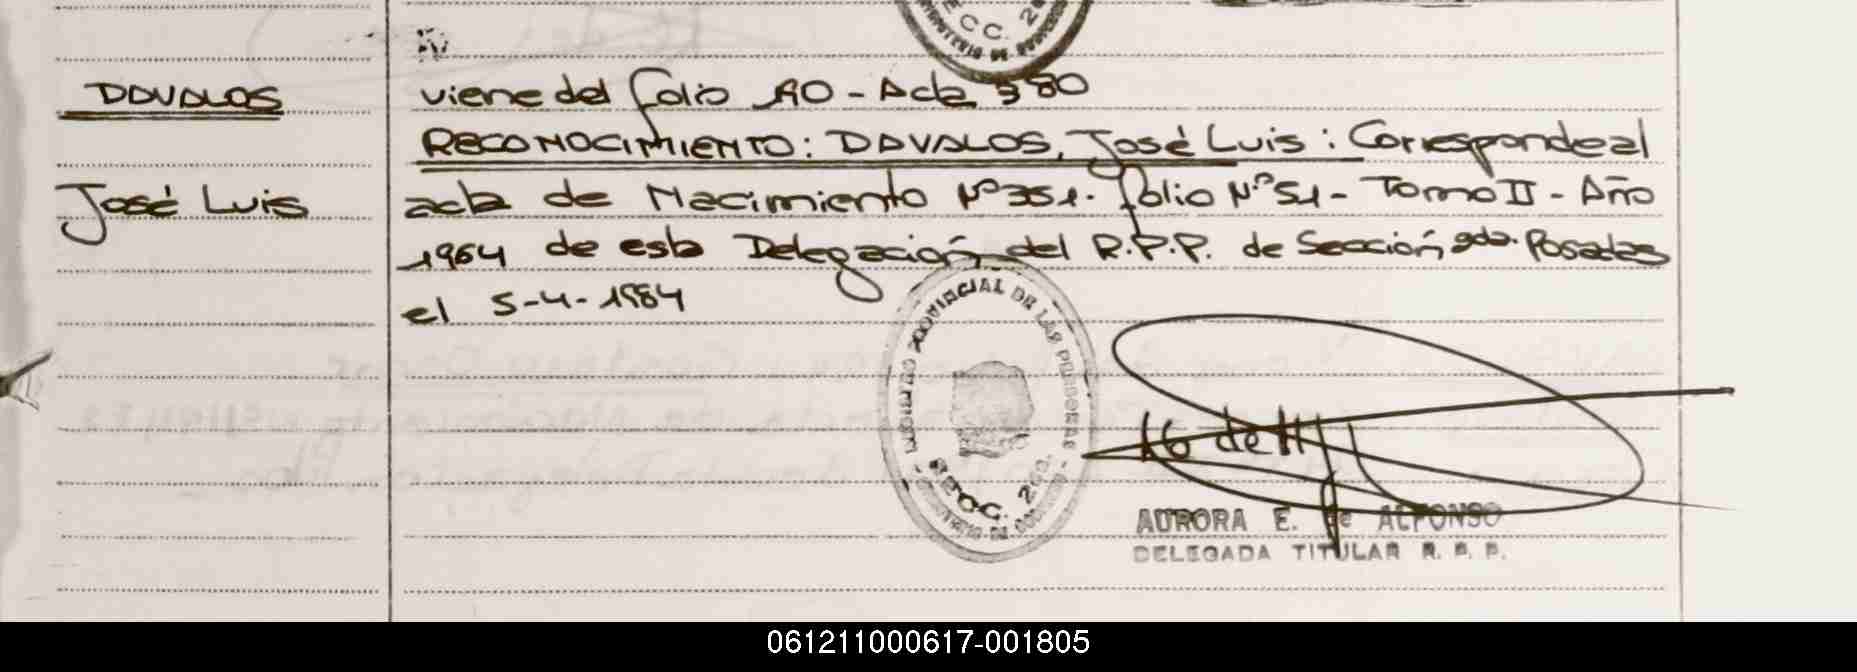 DAVALOS
José Luis
viene del folio 190 - Acta 380
RECONOCIMIENTO: DAVALOS, José Luis: Corresponde al
acta de Nacimiento Nº 351. folio Nº 51 - Tomo II - Año
1964 de esta Delegación del R.P.P. de Sección 2da. Posadas
el 5-4-1984
REGISTRO PROVINCIAL DE LAS PERSONAS
SECC. 2da.
AURORA E. de ALFONSO
DELEGADA TITULAR R. P. P.
061211000617-001805